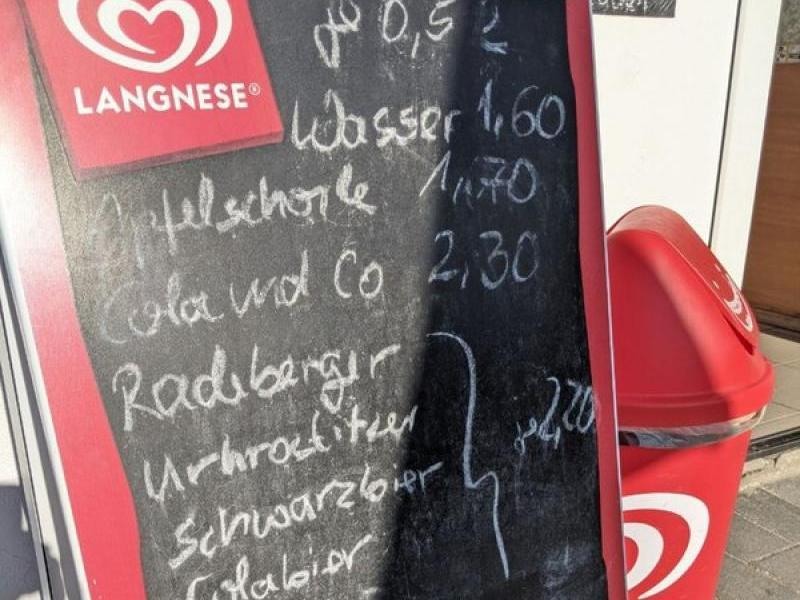 LANGNESE®
je 0,5 l
Wasser 1,60
Apfelschorle 1,70
Cola und Co 2,30
Radeberger
Urkrostitzer
Schwarzbier
Colabier
je 2,20